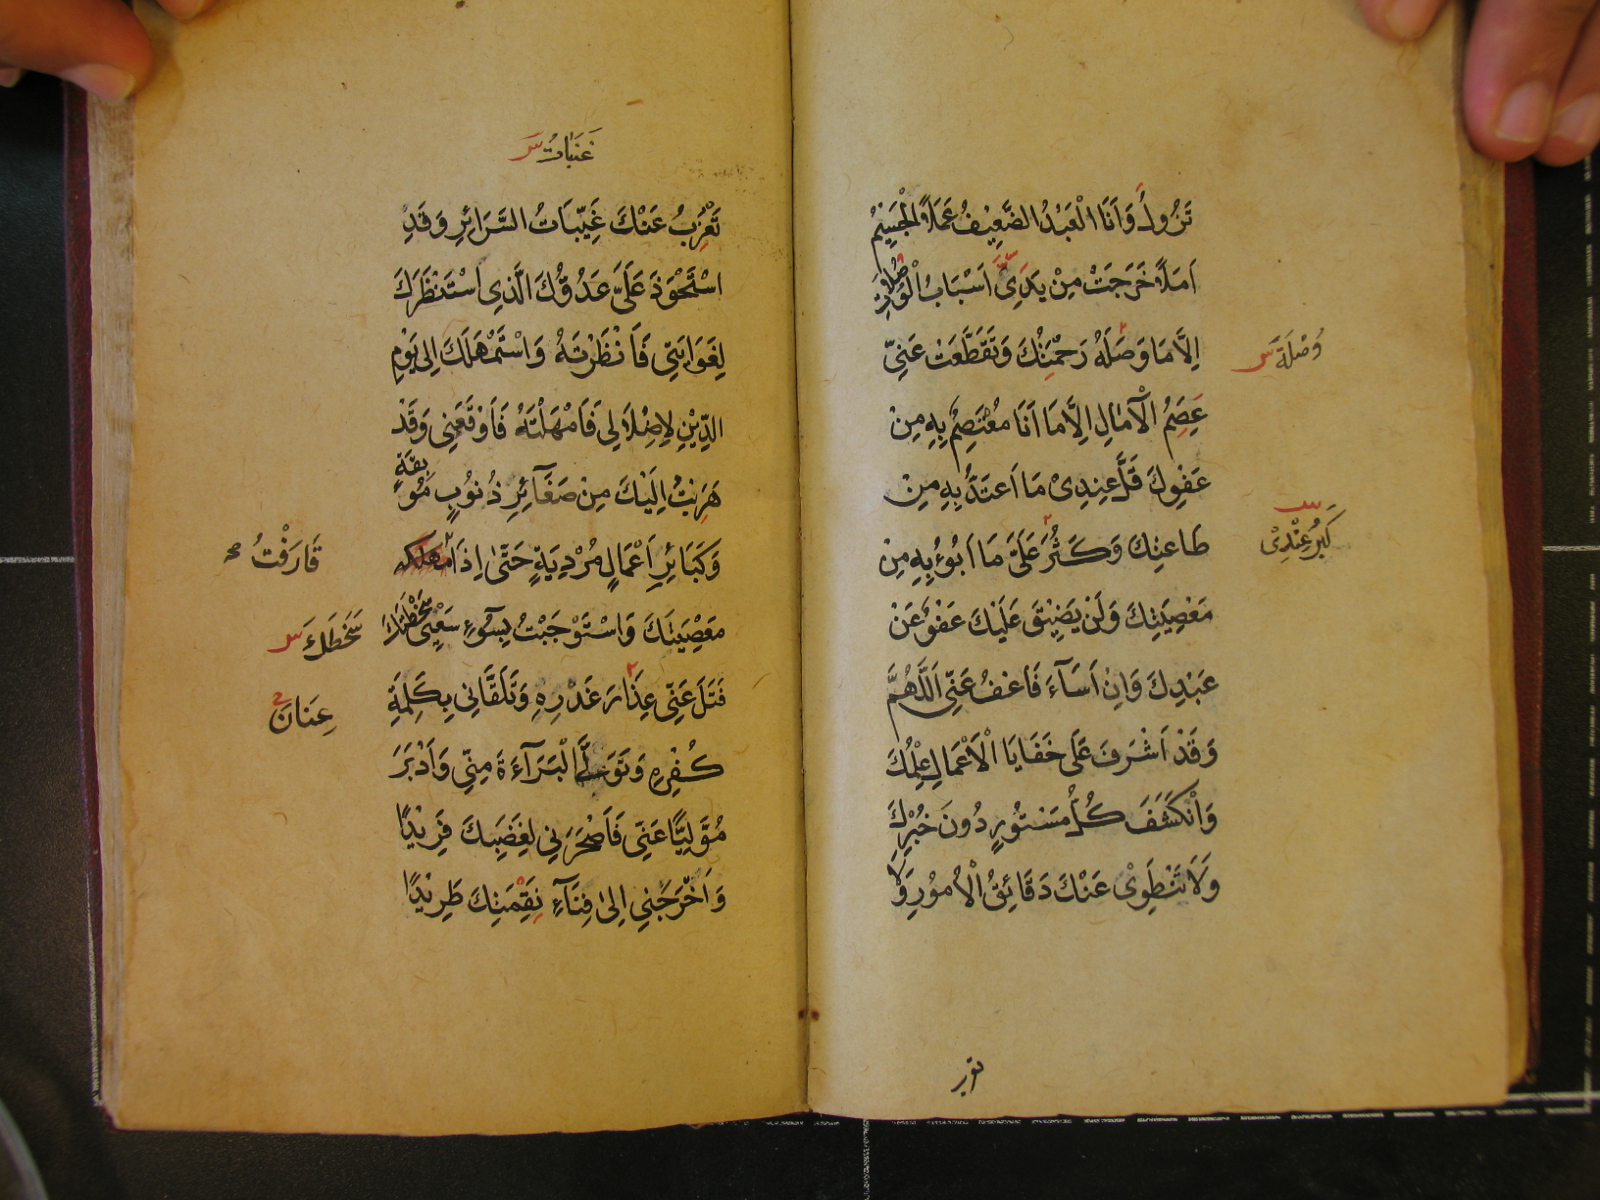 تَزُولُ وَاَنَا الْعَبْدُ الضَّعِيفُ عَمَلاً الْجَسِيْمُ
اَمَلاً خَرَجَتْ مِنْ يَدَيَّ اَسْبَابُ الْوُصُلاَتِ
اِلاَّ مَا وَصَلَهُ رَحْمَتُكَ وَتَقَطَّعَتْ عَنِّي
وُصْلَةُ س
عِصَمُ الْآمٰالِ اِلاَّ مَا اَنَا مُعْتَصِمٌ بِهِ مِنْ
عَفْوِكَ قَلَّ عِنْدِيْ مَا اَعْتَدُّ بِهِ مِنْ
كَبُرَ عِنْدِيْ س
طَاعَتِكَ وَكَثُرَ عَلَيَّ مَا اَبُوْءُ بِهِ مِنْ
مَعْصِيَتِكَ وَلَنْ يَضِيْقَ عَلَيْكَ عَفْوٌ عَنْ
عَبْدِكَ وَاِنْ اَسَآءَ فَاعْفُ عَنِّي اَللّٰهُمَّ
وَقَدْ اَشْرَفَ عَلٰى خَفَايَا الْاَعْمَالِ عِلْمُكَ
وَانْكَشَفَ كُلُّ مَسْتُورٍ دُونَ خُبْرِكَ
وَلاَ تَنْطَوِيْ عَنْكَ دَقَائِقُ الْاُمُوْرِ وَلاَ
تعزب
غَيَبَاتُ س
تَعْزُبُ عَنْكَ غَيِّبَاتُ السَّرَائِرِ وَقَدِ
اسْتَحْوَذَ عَلَيَّ عَدُوُّكَ الَّذِي اسْتَنْظَرَكَ
لِغَوَايَتِي فَاَنْظَرْتَهُ وَاسْتَمْهَلَكَ اِلٰى يَوْمِ
الدِّيْنِ لِاِضْلاَلِي فَاَمْهَلْتَهُ فَاَوْقَعَنِي وَقَدْ
هَرَبْتُ اِلَيْكَ مِنْ صَغَآئِرِ ذُنُوْبٍ مُوْبِقَةٍ
وَكَبَائِرِ اَعْمَالٍ مُرْدِيَةٍ حَتّٰى اِذَا
قَارَفْتُ صح
مَعْصِيَتَكَ وَاسْتَوْجَبْتُ بِسُوْءِ سَعْيِيْ سَخْطَتَكَ
سَخَطَكَ س
فَتَلَ عَنِّي عِذَارَ غَدْرِهِ وَتَلَقَّانِي بِكَلِمَةِ
عِنَانَ
كُفْرِهِ وَتَوَلَّى الْبَرَآءَةَ مِنِّي وَاَدْبَرَ
مُوَلِّيًا عَنِّي فَاَصْحَرَنِي لِغَضَبِكَ فَرِيْدًا
وَاَخْرَجَنِي اِلٰى فِنَآءِ نَقِمَتِكَ طَرِيْدًا